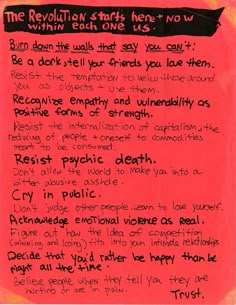 The Revolution starts here + now
within each one us.
Burn down the walls that say you can't:
Be a dork, tell your friends you love them.
Resist the temptation to view those around
you as objects + use them.
Recognize empathy and vulnerability as
positive forms of strength.
Resist the internalization of capitalism, the
reducing of people + oneself to commodities
meant to be consumed.
Resist psychic death.
Don't allow the world to make you into a
bitter abusive asshole.
Cry in public.
Don't judge other people. Learn to love yourself.
Acknowledge emotional violence as Real.
Figure out how the idea of competition
(winning and losing) fits into your intimate relationships
Decide that you'd rather be happy than be
right all the time.
Believe people when they tell you they are
hurting or are in pain.
Trust.